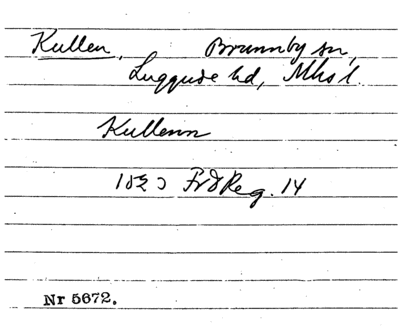 Kullen, Brunnby sn,
Luggude hd, Mhs l.
Kullenn
FrdReg. 14
Nr 5672.